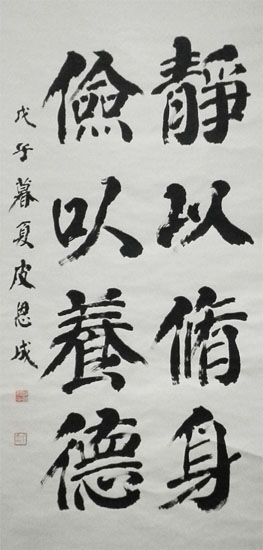 靜以脩身
儉以養德
戊子暮夏皮思成